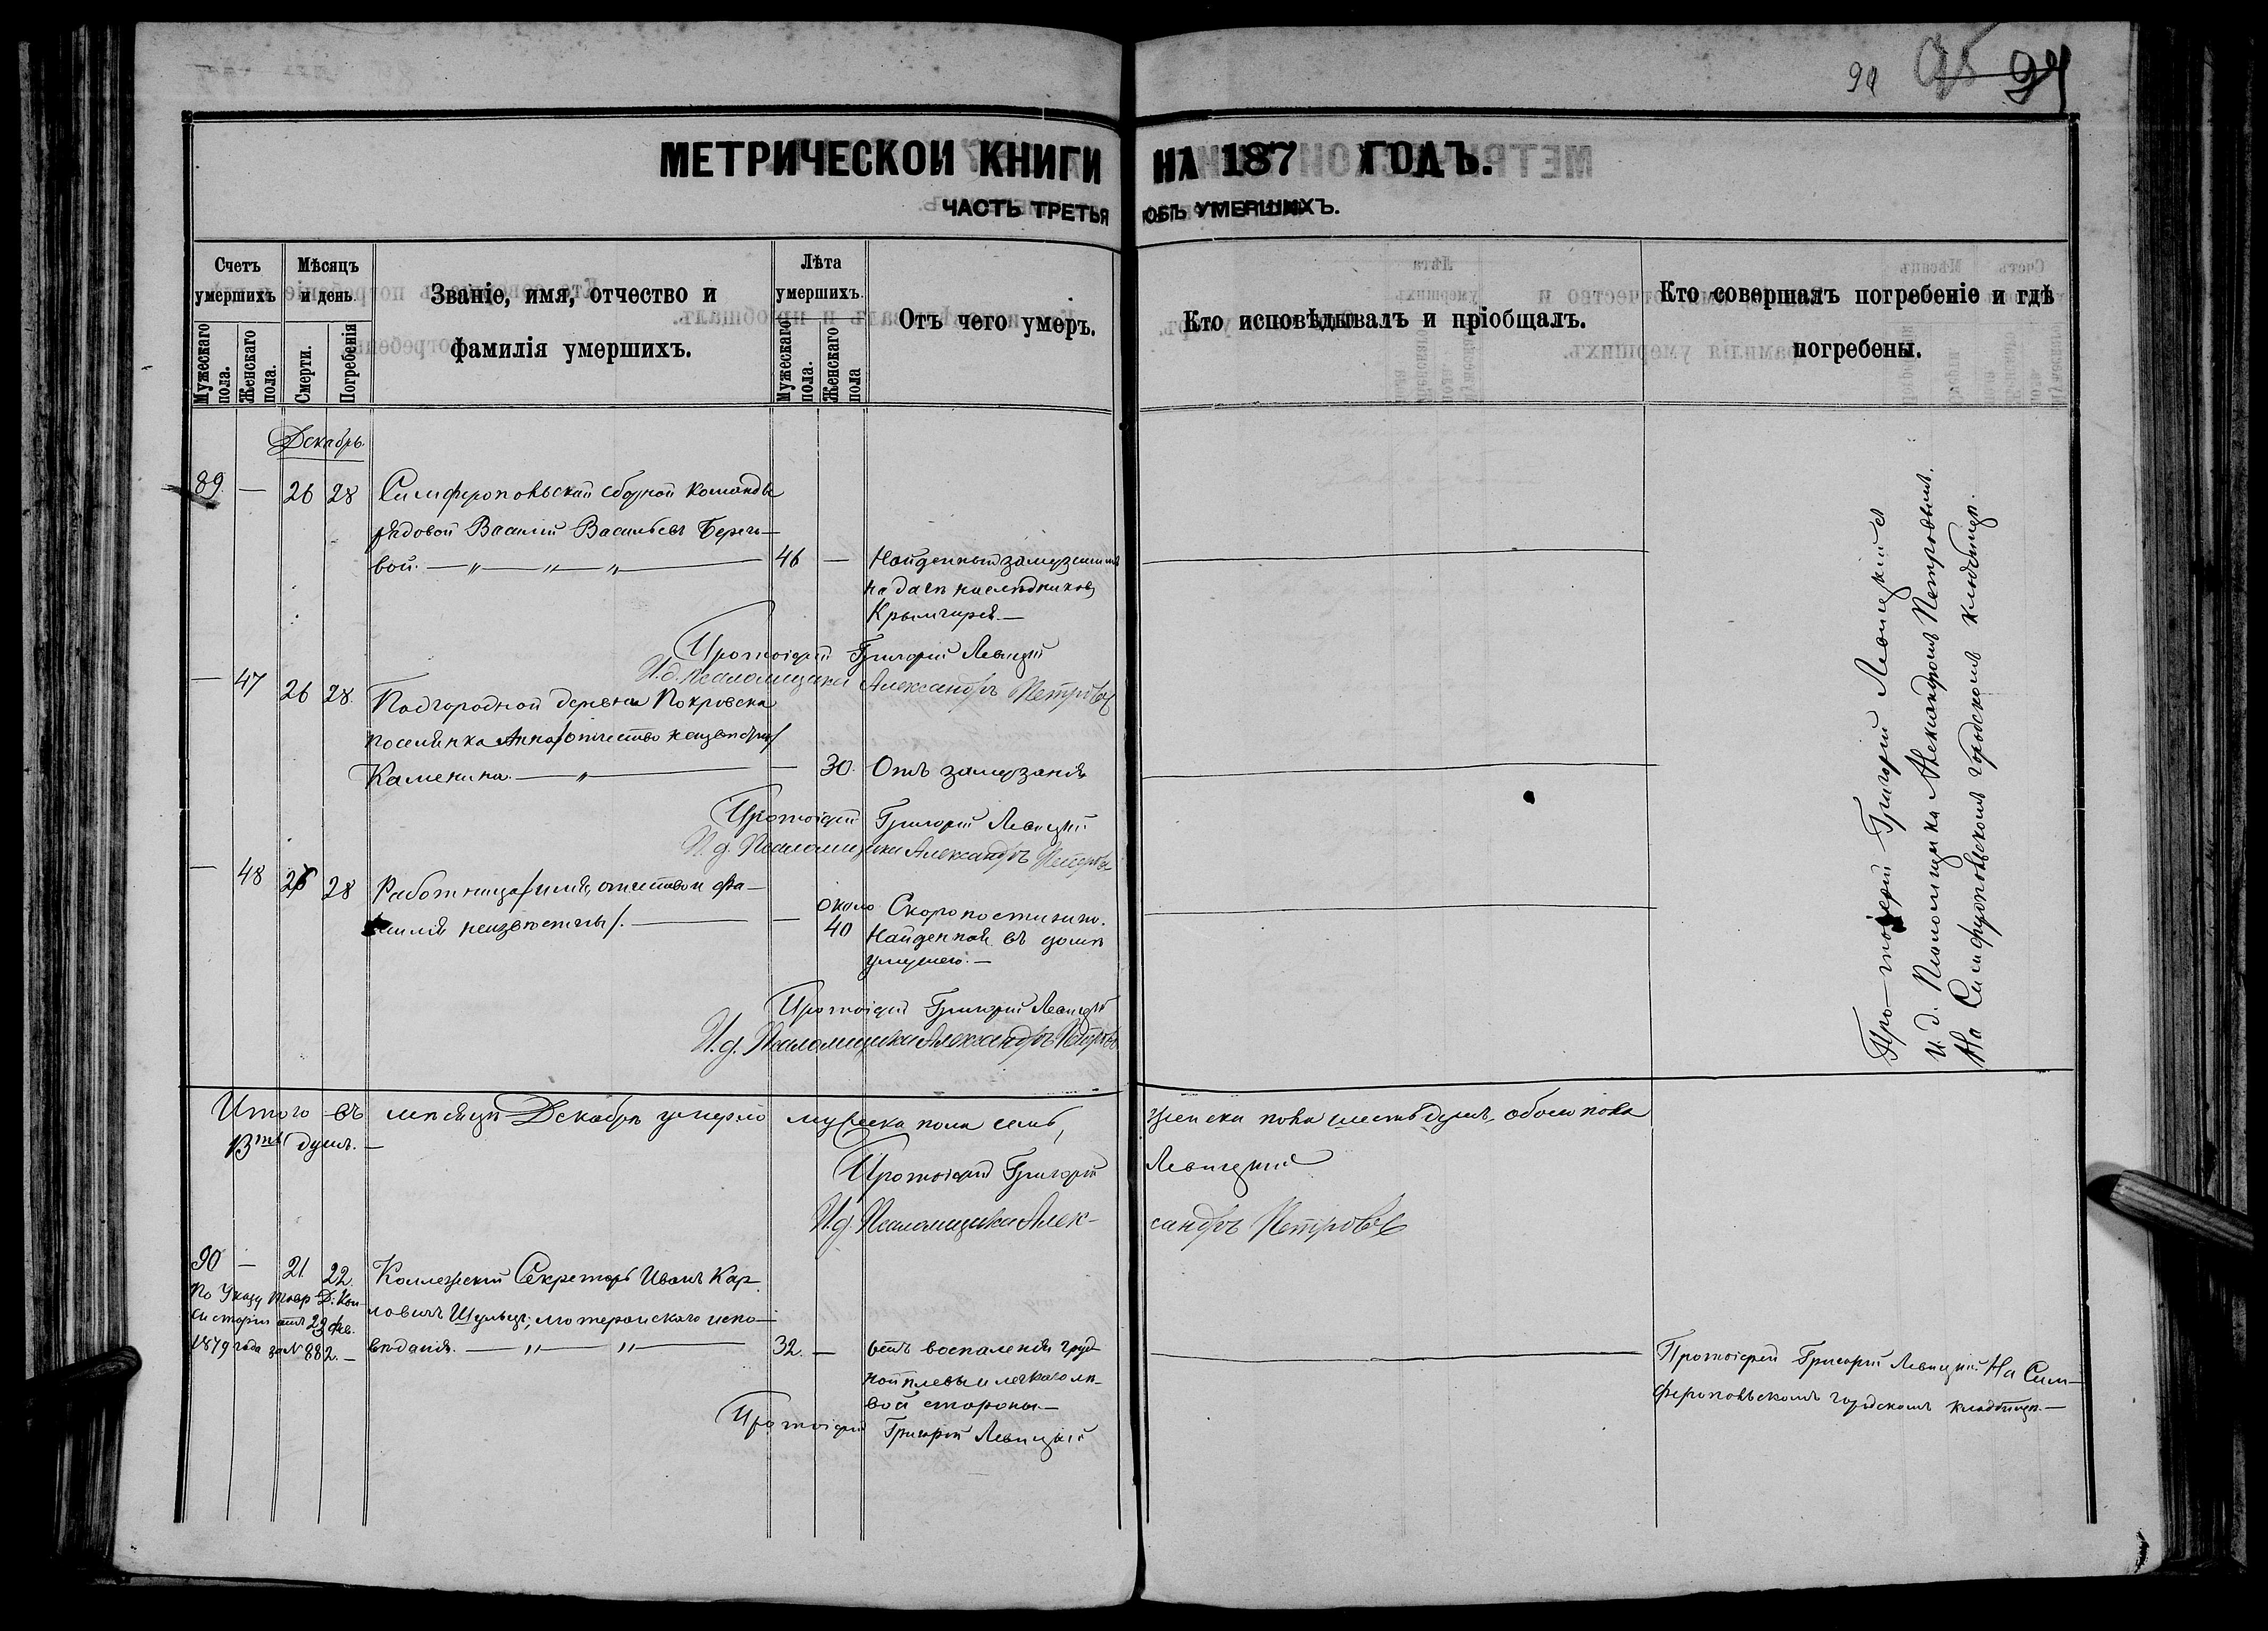 90 95 94
МЕТРИЧЕСКОЙ КНИГИ НА 187 ГОДЪ.
ЧАСТЬ ТРЕТЬЯ ОБЪ УМЕРШИХЪ.
Счетъ умершихъ
Мѣсяцъ и день
Званіе, имя, отчество и фамилія умершихъ.
Лѣта умершихъ.
Отъ чего умеръ.
Кто исповѣдывалъ и пріобщалъ.
Кто совершалъ погребеніе и гдѣ погребены.
Мужескаго пола.
Женскаго пола.
Смерти.
Погребенія
Мужескаго пола.
Женскаго пола
Декабрь.
89. — 26 28 Симферопольской сборной команды
рядовой Василій Васильевъ Берего-
вой. — „ — „ — „ — 46 — Найденный замерзшимъ
на дачѣ наслѣдниковъ
Крымгирея. —
Протоіерей Григорій Левицкій
И.д. псаломщика Александръ Петровъ
— 47 26 28. Подгородной деревни Покровска
поселянка Анна /отчество неизвѣстно/
Каменина. — „ — — 30. Отъ замерзанія
Протоіерей Григорій Левицкій
И.д. Псаломщика Александръ Петровъ
— 48 26 28 Работница /имя, отчество и фа-
милія неизвѣстны/. — — около 40 Скоропостижно.
Найденная въ домѣ
умершею. —
Протоіерей Григорій Левицкій
И.д. Псаломщика Александръ Петровъ
Протоіерей Григорій Левицкій съ
и. д. Псаломщика Александромъ Петровымъ.
На Симферопольскомъ городскомъ кладбищѣ.
Итого въ мѣсяцѣ Декабрѣ умерло мужеска пола семь, женска пола шесть душъ, обоего пола
13ть душъ. —
Протоіерей Григорій Левицкій
И.д. Псаломщика Александръ Петровъ
90 — 21 22. Коллежскій Секретарь Иванъ Кар-
ловичъ Шульцъ, лютеранскаго испо-
вѣданія. — „ — „ — 32. — отъ воспаленія груд-
ной плевы и легкаго лѣ-
вой стороны —
По Указу Тавр. Д. Кон-
систоріи отъ 23 фев.
1879 года за № 882. —
Протоіерей Григорій Левицкій На Сим-
феропольскомъ городскомъ кладбищѣ. —
Протоіерей Григорій Левицкій